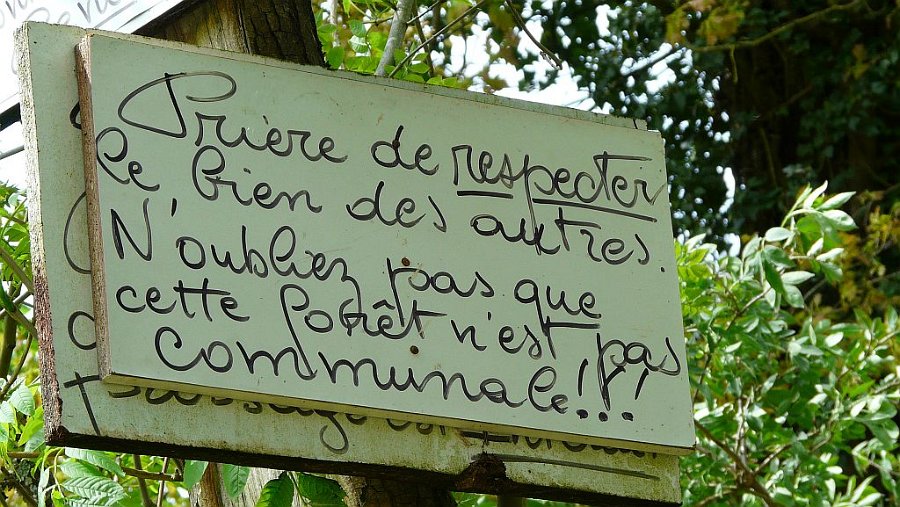 Prière de respecter
le bien des autres.
N'oubliez pas que
cette forêt n'est pas
communale!!!